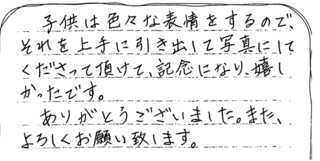 子供は色々な表情をするので、
それを上手に引き出して写真にして
くださって頂けて、記念になり、嬉し
かったです。
ありがとうございました。また、
よろしくお願い致します。